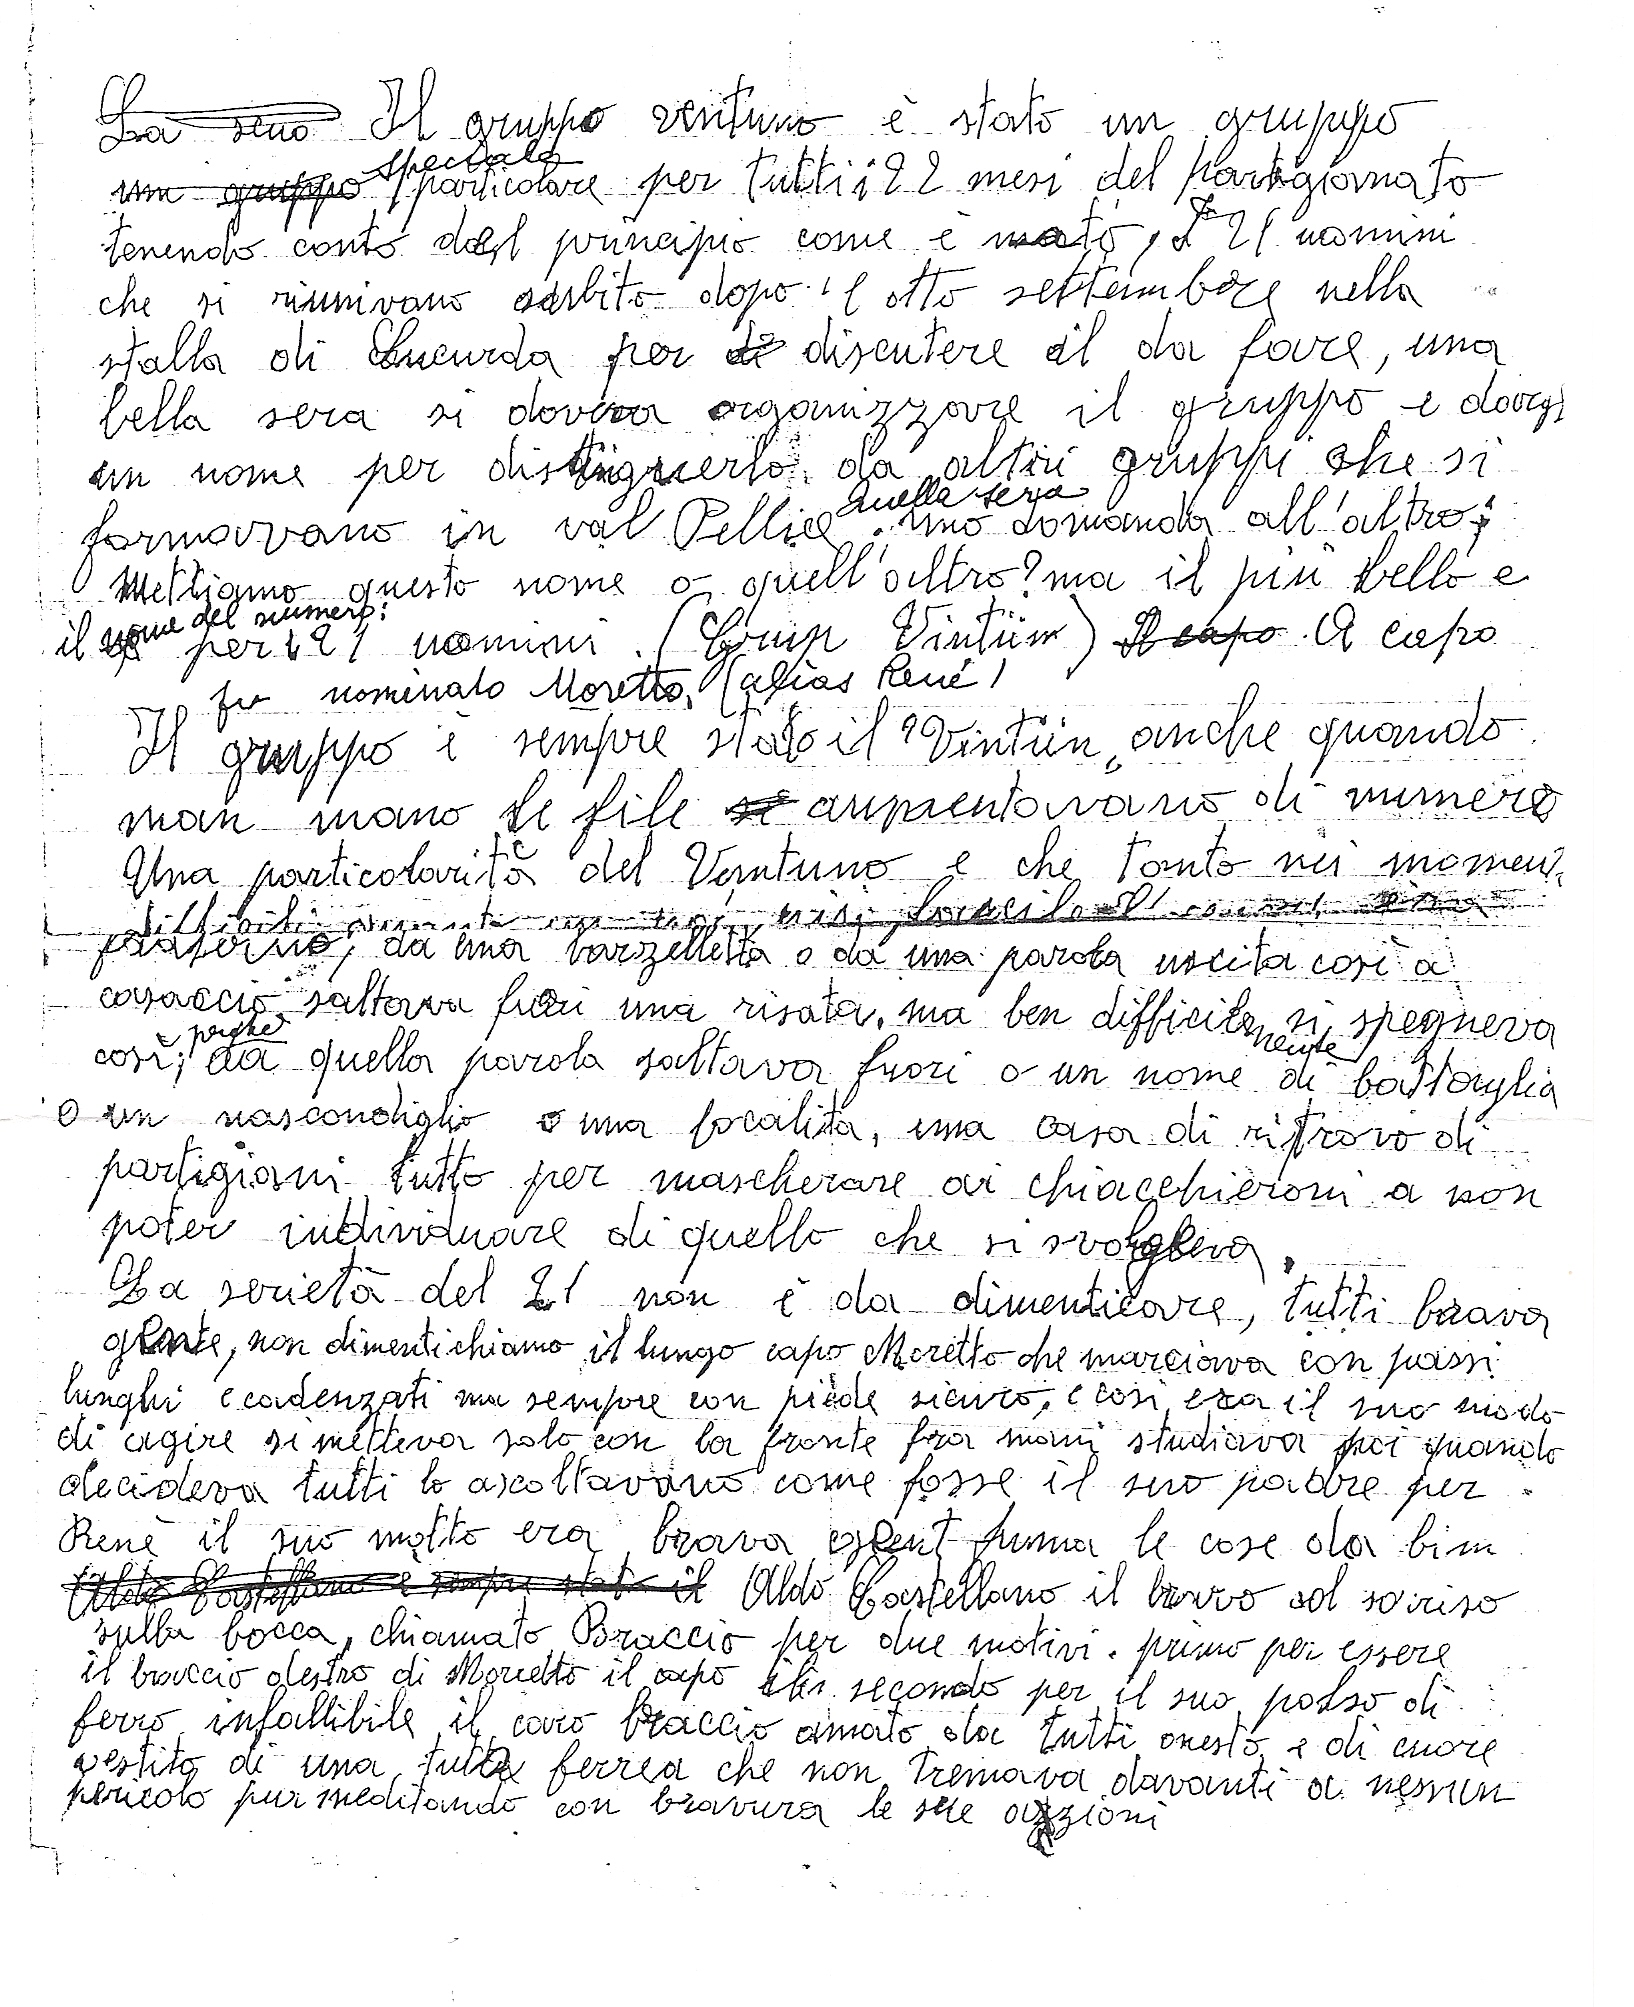 La seno Il gruppo ventuno è stato un gruppo
speciale
un gruppo particolare per tutti i 22 mesi del partigianato
tenendo conto del principio come è nato, I 21 uomini
che si riunivano subito dopo l'otto settembre nella
stalla di Cucurda per di discutere il da fare, una
bella sera si doveva organizzare il gruppo e dargli
un nome per distinguerlo da altri gruppi che si
Quella sera
formavano in val Pellice. uno domanda all'altro;
Mettiamo questo nome o quell'altro? ma il più bello e
nome del numero:
il per i 21 uomini. (Grup Vintiün) Il capo. A capo
fu nominato Moretto. (alias René)
Il gruppo è sempre stato il Vintiün, anche quando
man mano le file se aumentavano di numero
Una particolarità del Ventuno è che tanto nei momenti
difficili
fraterno, da una barzelletta o da una parola uscita così a
casaccio saltava fuori una risata, ma ben difficilmente si spegneva
perché
così, da quella parola saltava fuori o un nome di battaglia
o un nascondiglio o una località, una casa di ritrovo di
partigiani tutto per mascherare ai chiacchieroni a non
poter individuare di quello che si svolgeva.
La serietà del 21 non è da dimenticare, tutti brava
gente, non dimentichiamo il lungo capo Moretto che marciava con passi
lunghi e cadenzati ma sempre con piede sicuro, e così era il suo modo
di agire si metteva solo con la fronte fra mani studiava poi quando
decideva tutti lo ascoltavano come fosse il suo padre per
Renè il suo motto era brava gent fuma le cose da bin
Aldo Castellano è sempre stato il Aldo Castellano il bravo col sorriso
sulla bocca, chiamato Braccio per due motivi. primo per essere
il braccio destro di Moretto il capo secondo per il suo polso di
ferro infallibile il caro Braccio amato da tutti onesto e di cuore
vestito di una tuta ferrea che non tremava davanti a nessun
pericolo pur meditando con bravura le sue azzioni